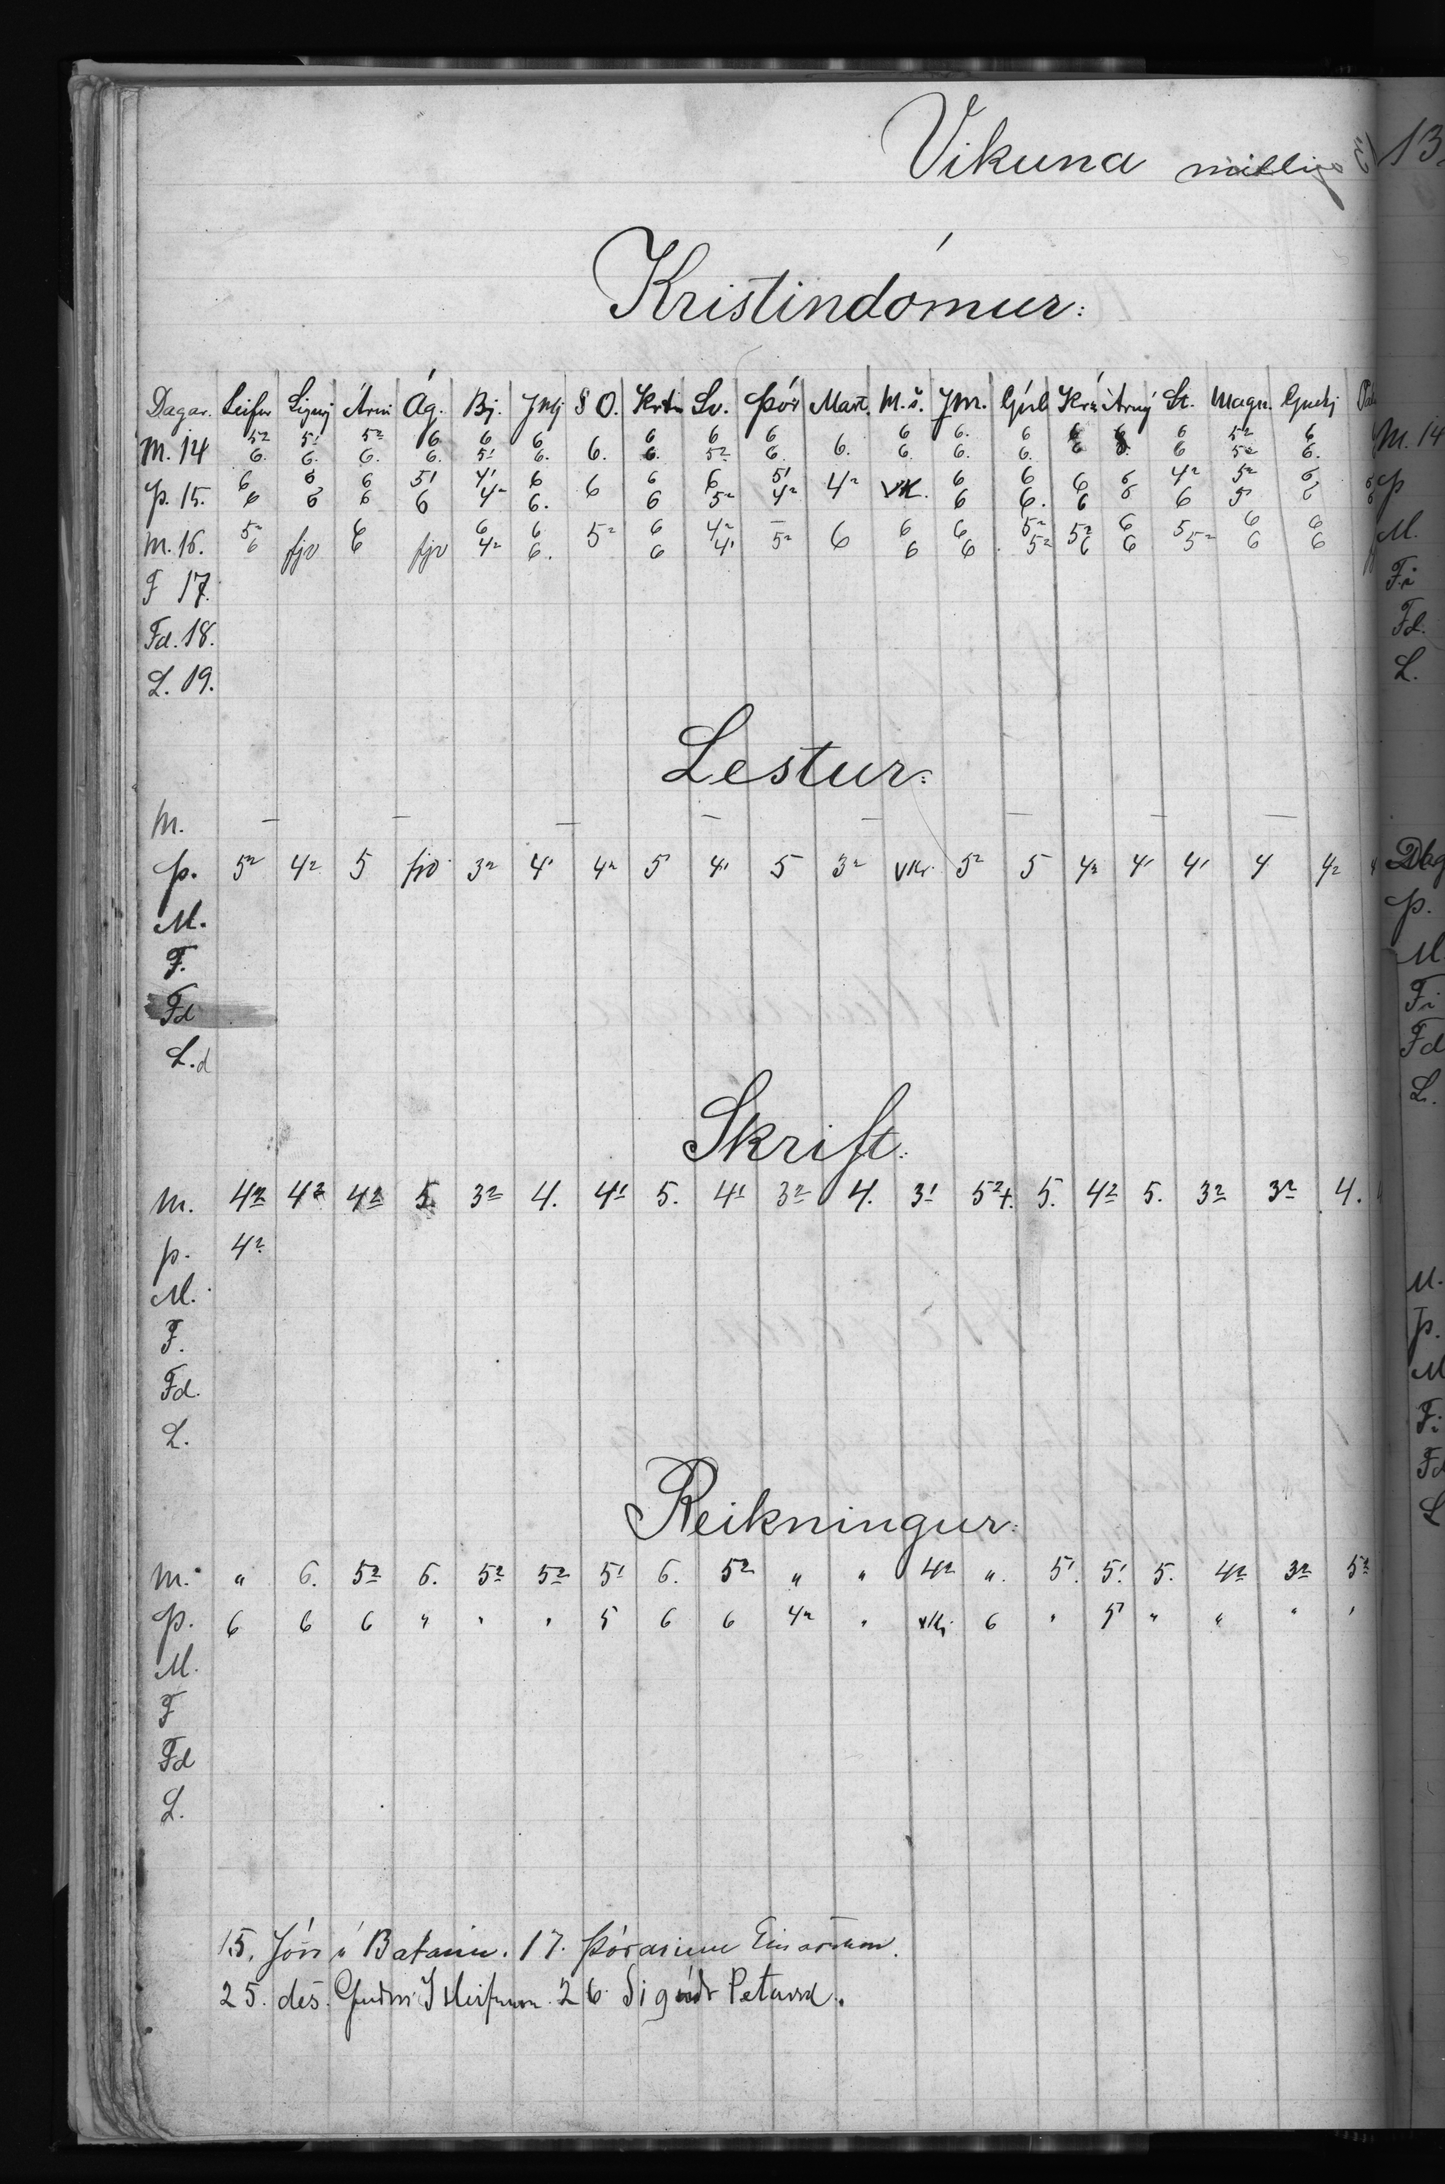 Vikuna milli
13
Kristindómur:
Dagar. Leifur Signý Árni Ág. Bj. S O. Sv. Þór Mart. M. S. Jm. Árný St. Magn.
M. 14 5² 5¹ 5² 6 6 6 6. 6 6 6 6. 6 6. 6 6 6 6 5² 6
6. 6. 6. 6. 5¹ 6. 6. 5² 6. 6. 6. 6. 6 6 6 5² 6.
Þ. 15. 6 6 6 5¹ 4¹ 6 6 6 6 5¹ 4² VK. 6 6 6 6 4² 5² 6
6 6 6 6 4² 6. 6 5² 4² 6 6. 6 6 6 5¹ 6
M. 16. 5² fjv 6 fjv 6 6 5² 6 4² – 6 6 6 5² 5² 6 5 6 6
6 6 4² 6. 6 4¹ 5² 6 6 5² 6 6 5² 6 6
F 17.
Fd. 18.
L. 19.
Lestur:
M. – – – – – – – –
Þ. 5² 4² 5 fjv 3² 4¹ 4² 5¹ 4¹ 5 3² VKr. 5² 5 4² 4¹ 4¹ 4 4²
M.
F.
Fd
L.d
Skrift:
M. 4² 4² 4² 5. 3² 4. 4¹ 5. 4¹ 3² 4. 3¹ 5²+. 5. 4² 5. 3² 3² 4.
Þ. 4²
M.
F.
Fd.
L.
Reikningur:
M. " 6. 5² 6. 5² 5² 5¹ 6. 5² " " 4² ". 5¹. 5¹. 5. 4² 3² 5²
Þ. 6 6 6 " " " 5 6 6 4² " VKr. 6 " 5¹ " " " "
M.
F
Fd
L.
15. Jón á Bataníu. 17. Þórarinn Einarsson.
25. des. Guðm. 26. Sigríðr Petursd.
M. 14
Þ
M.
Fi
Fd.
L.
Dag
Þ.
M
Fi
Fd
L.
M.
Þ.
M
Fi
Fd
L